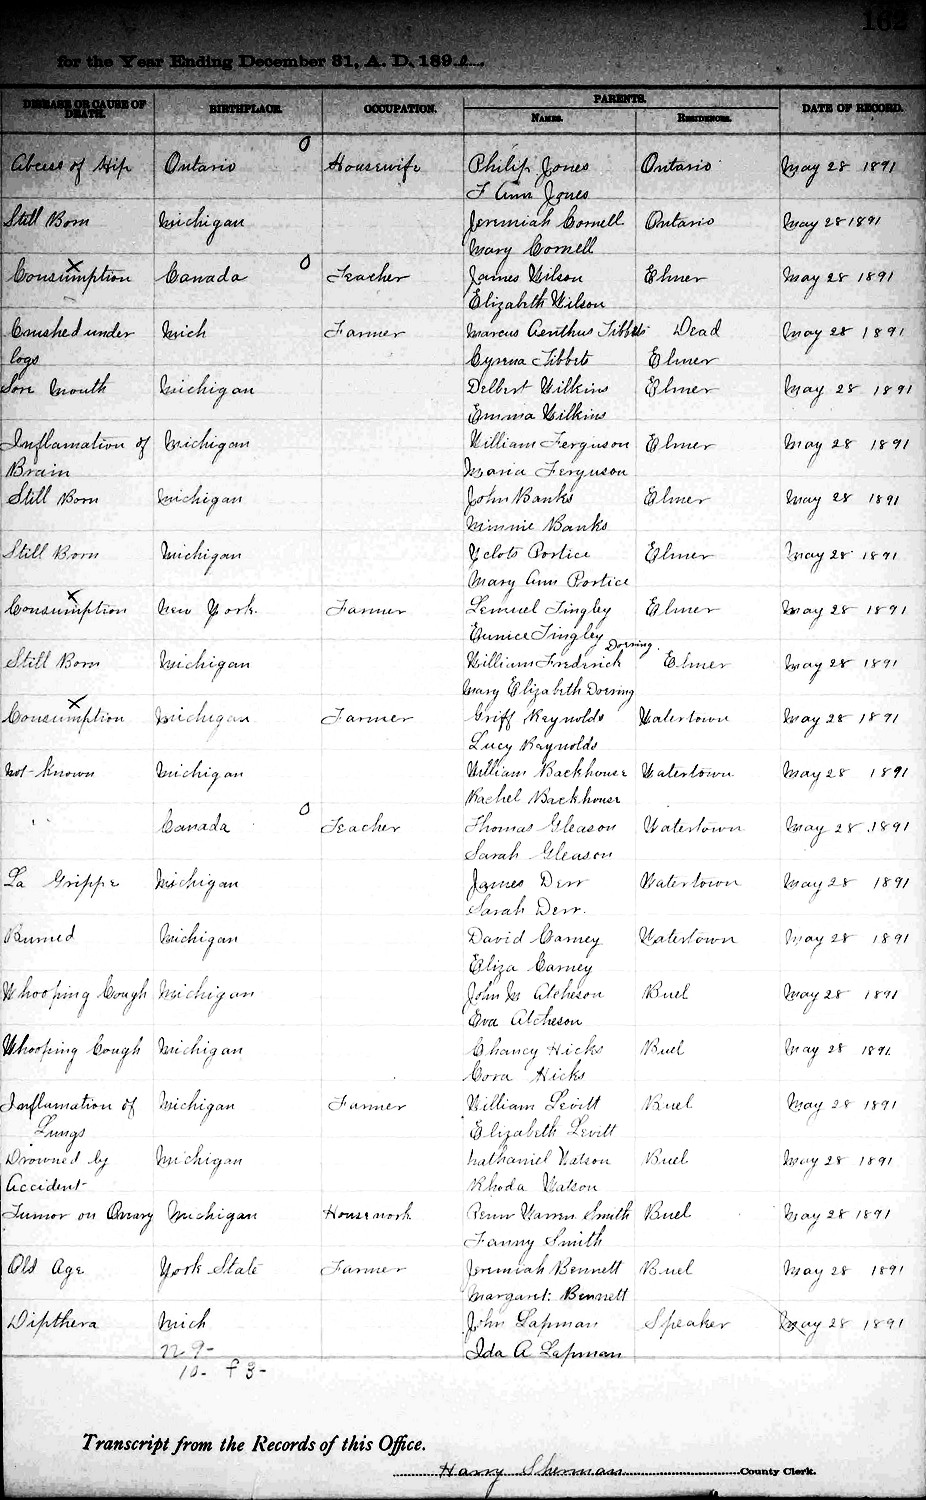 162
for the Year Ending December 31, A. D. 189
DISEASE OR CAUSE OF DEATH. BIRTHPLACE. OCCUPATION. PARENTS. DATE OF RECORD.
NAMES. RESIDENCES.
Abcess of Hip Ontario O Housewife Philip Jones Ontario May 28 1891
F Ann Jones
Still Born Michigan Jeremiah Cornell Ontario May 28 1891
Mary Cornell
Consumption X Canada O Teacher James Wilson Elmer May 28 1891
Elizabeth Wilson
Crushed under Mich Farmer Marcus Tibbets Dead May 28 1891
logs Cyrena Tibbets Elmer
Sore Mouth Michigan Delbert Wilkins Elmer May 28 1891
Emma Wilkins
Inflamation of Michigan William Ferguson Elmer May 28 1891
Brain Maria Ferguson
Still Born Michigan John Banks Elmer May 28 1891
Minnie Banks
Still Born Michigan Portice Elmer May 28 1891
Mary Ann Portice
Consumption X New York. Farmer Lemuel Tingley Elmer May 28 1891
Eunice Tingley
Still Born Michigan William Fredrick Dorning. Elmer May 28 1891
Mary Elizabeth Dorning
Consumption X Michigan Farmer Griff Reynolds Watertown May 28 1891
Lucy Raynolds
Not-Known Michigan William Backhouse Watertown May 28 1891
Rachel Backhouse
" Canada O Teacher Thomas Gleason Watertown May 28 1891
Sarah Gleason
La Grippe Michigan James Derr Watertown May 28 1891
Sarah Derr.
Burned Michigan David Carney Watertown May 28 1891
Eliza Carney
Whooping Cough Michigan John M Atcheson Buel May 28 1891
Eva Atcheson
Whooping Cough Michigan Chancy Hicks Buel May 28 1891
Cora Hicks
Inflamation of Michigan Farmer William Levitt Buel May 28 1891
Lungs Elizabeth Levitt
Drowned by Michigan Nathaniel Watson Buel May 28 1891
Accident Rhoda Watson
Tumor on Ovary Michigan Housework Penn Warren Smith Buel May 28 1891
Fanny Smith
Old Age York State Farmer Jeremiah Bennett Buel May 28 1891
Margaret Bennett
Dipthera Mich John Lapman Speaker May 28 1891
m 9- Ida A Lapman
10- f 3-
Transcript from the Records of this Office.
Harry Sherman County Clerk.